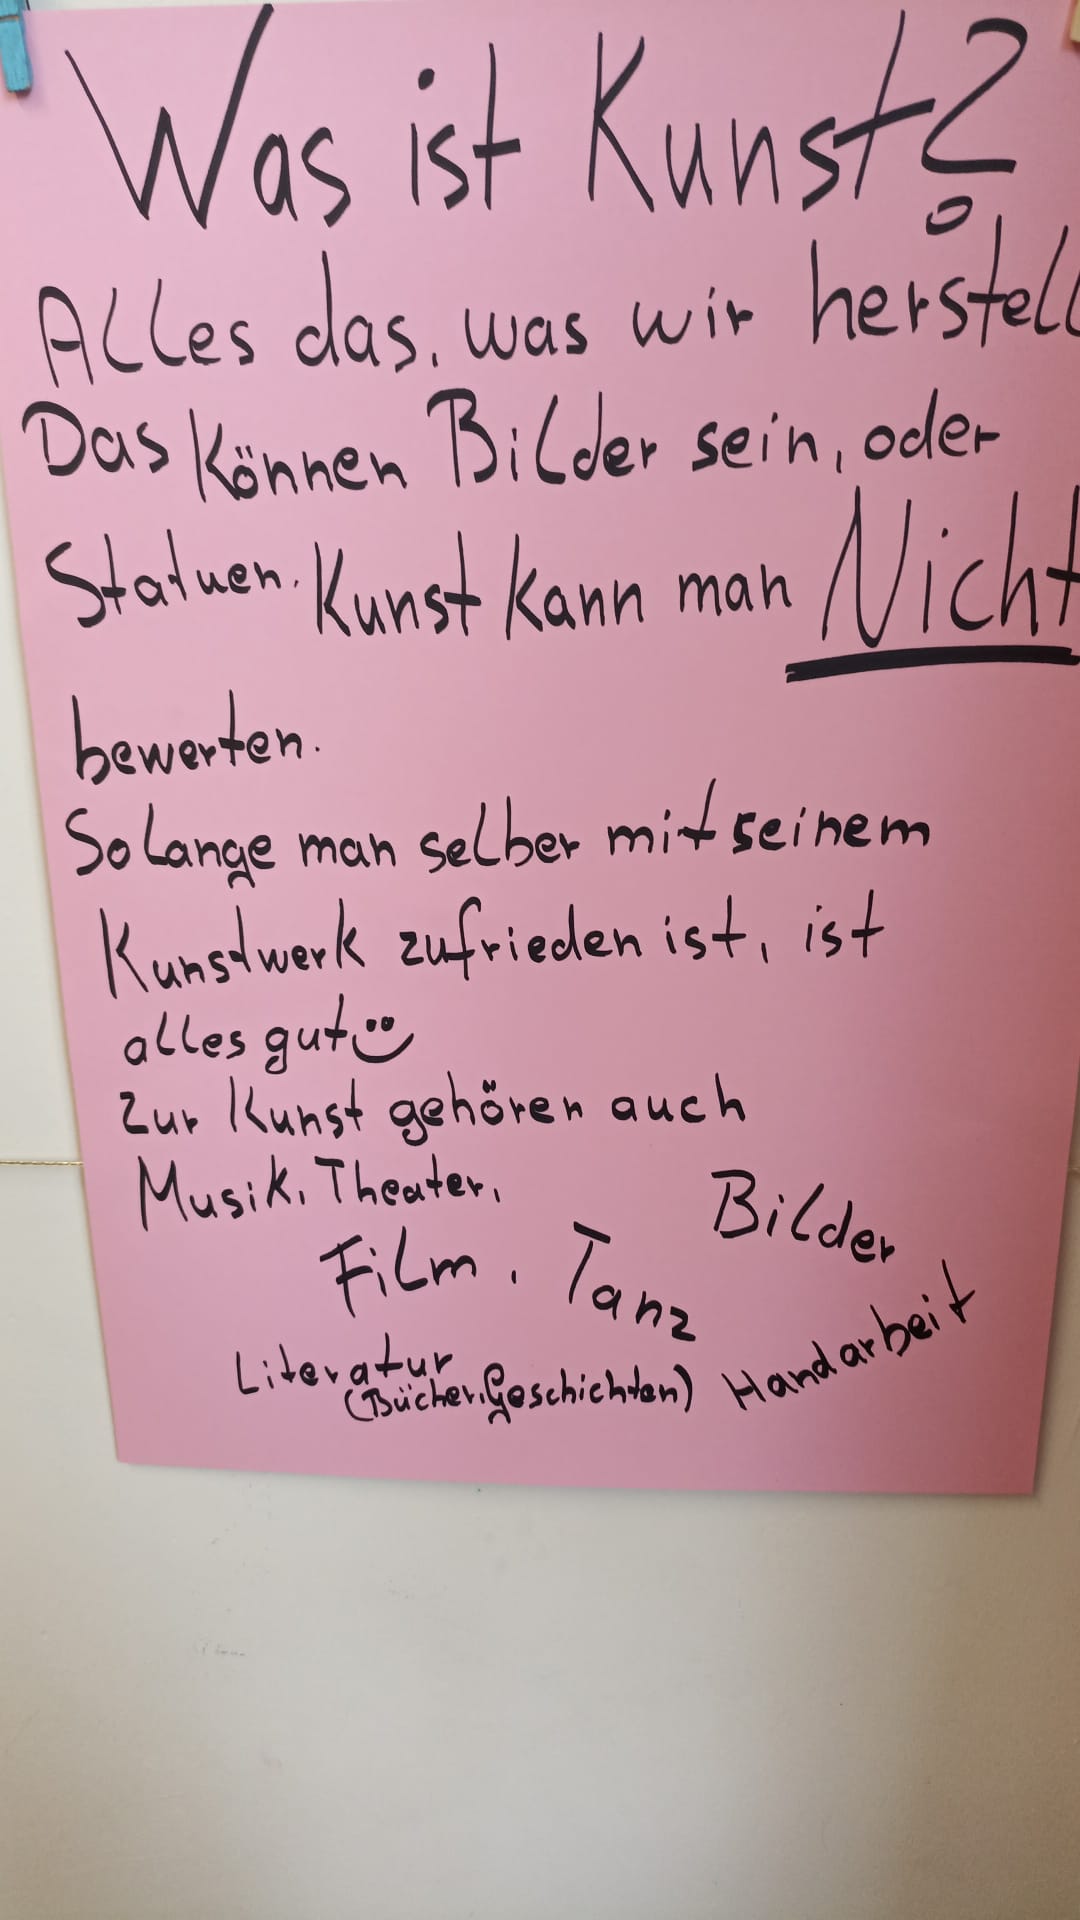 Was ist Kunst?
Alles das, was wir herstell
Das können Bilder sein, oder
Statuen. Kunst kann man Nicht
bewerten.
Solange man selber mit seinem
Kunstwerk zufrieden ist, ist
alles gut
Zur Kunst gehören auch
Musik, Theater,
Bilder
Film, Tanz
Handarbeit
Literatur
(Bücher, Geschichten)